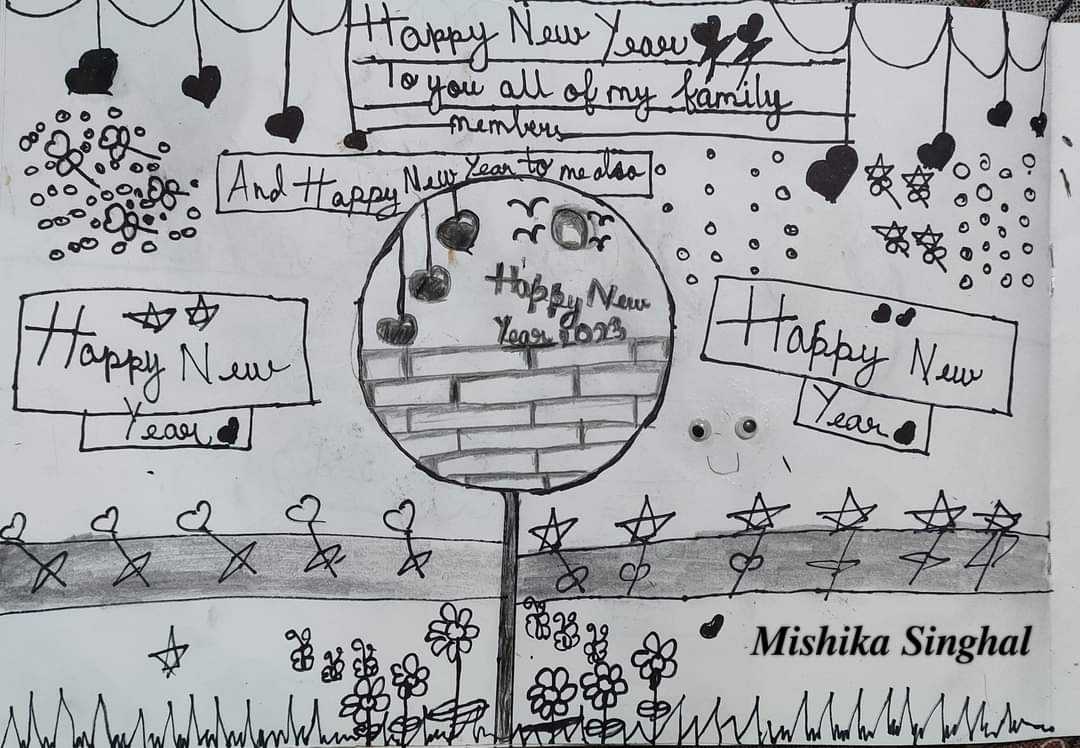 Happy New Year
To you all of my family
members
And Happy New Year to me also
Happy New
Year 2023
Happy New
Year
Happy New
Year
Mishika Singhal